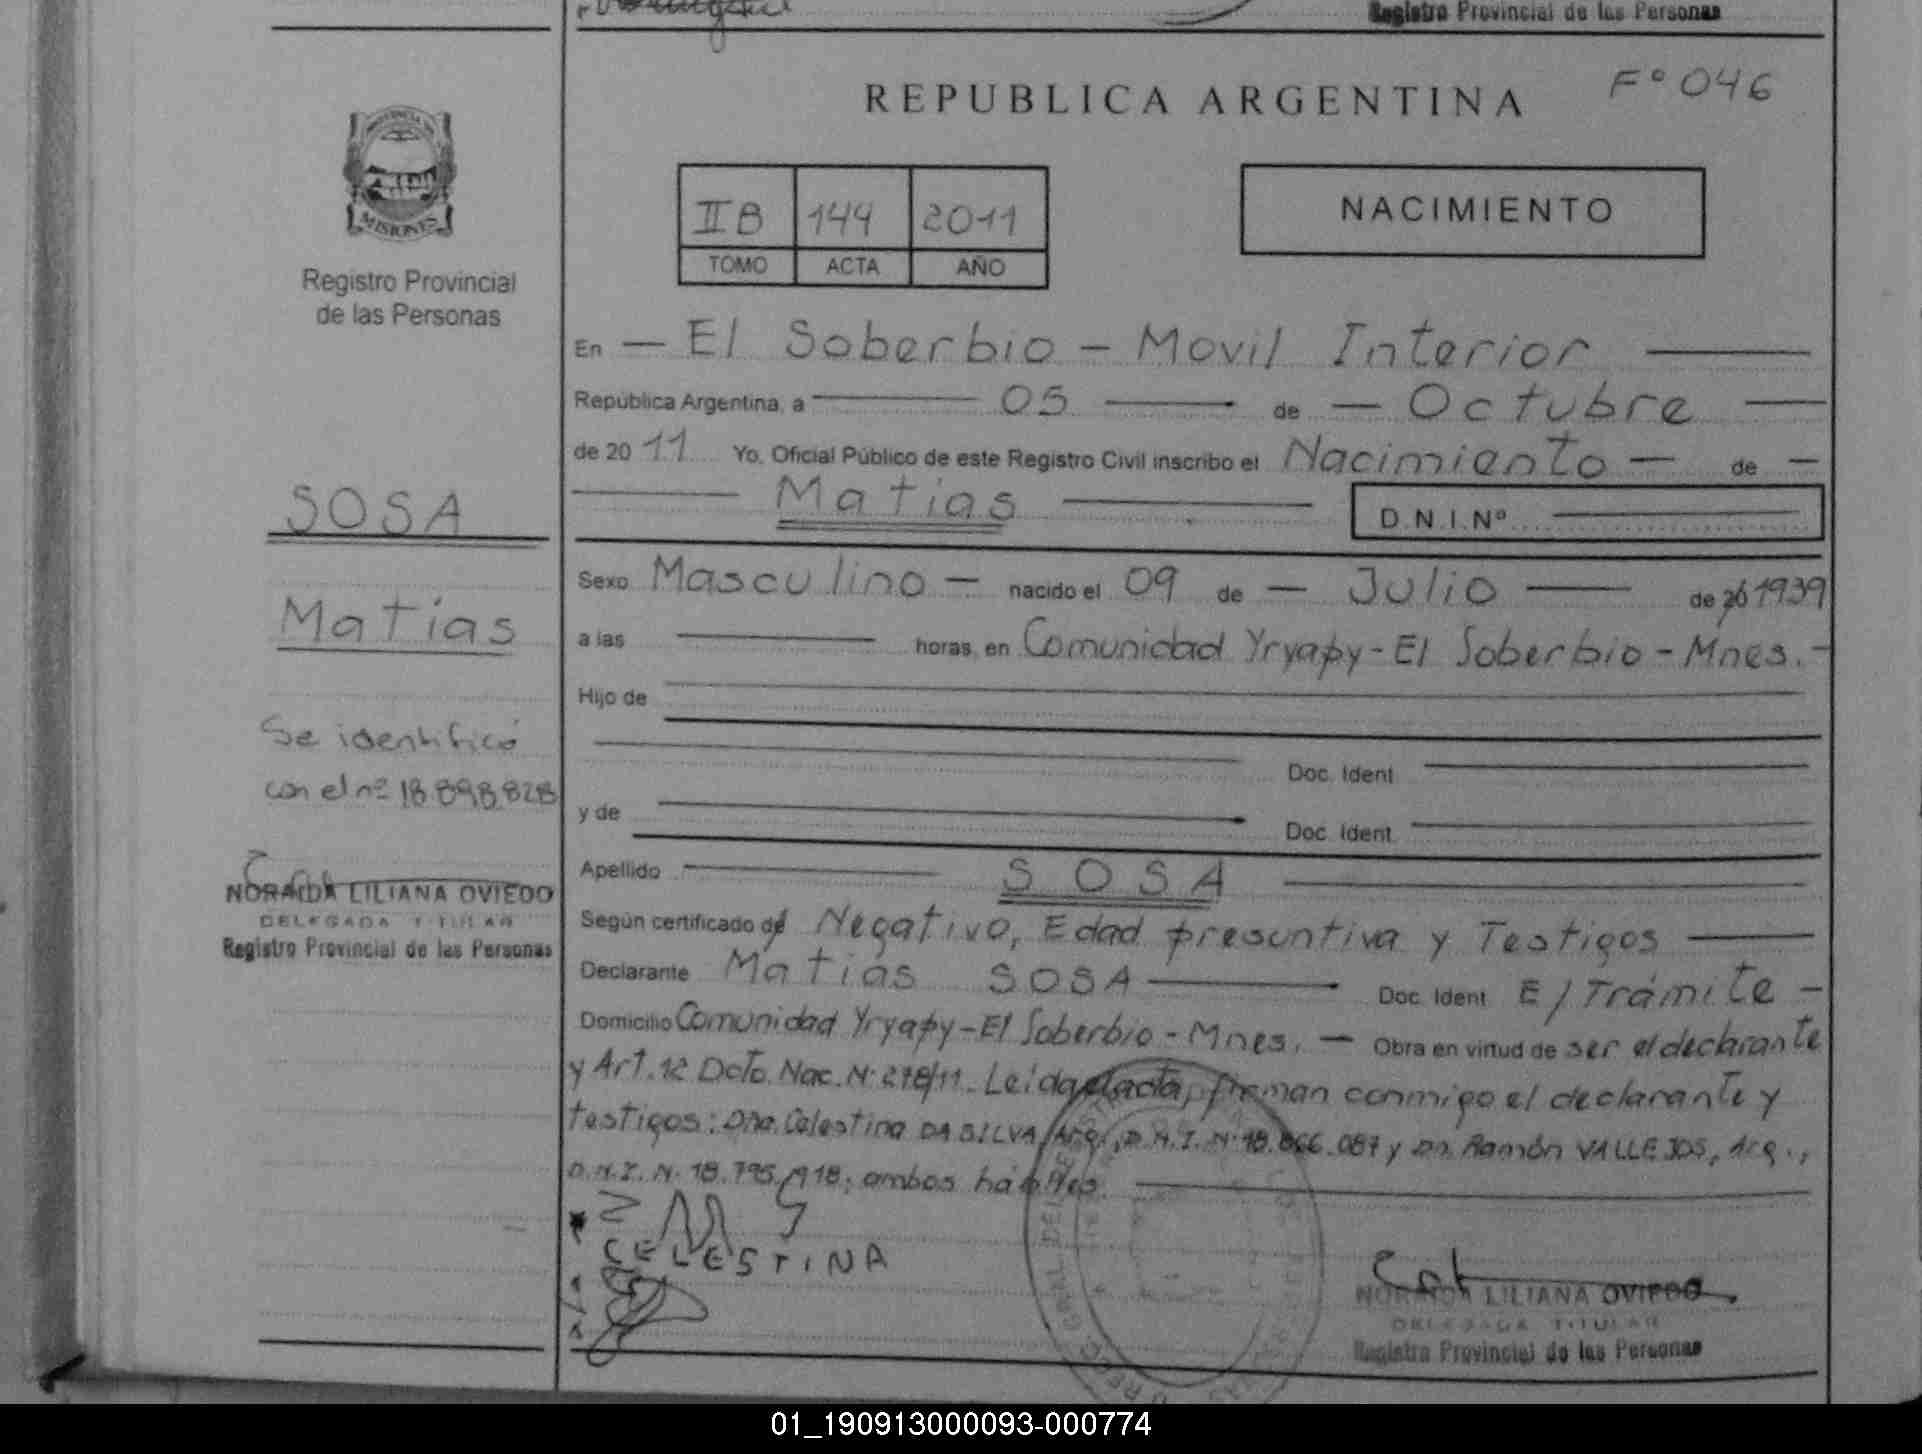 Registro Provincial de las Personas
F° 046
REPUBLICA ARGENTINA
PROVINCIA DE
MISIONES
Registro Provincial
de las Personas
II B 144 2011
TOMO ACTA AÑO
NACIMIENTO
En — El Soberbio - Movil Interior —
República Argentina, a — 05 — de — Octubre —
de 20 11 Yo, Oficial Público de este Registro Civil inscribo el Nacimiento — de —
— Matias — D.N.I.Nº —
SOSA
Matias
Se identificó
con el nº 18.898.828
NORAIDA LILIANA OVIEDO
DELEGADA TITULAR
Registro Provincial de las Personas
Sexo Masculino — nacido el 09 de — Julio — de 20 1939
a las — horas, en Comunidad Yryapy - El Soberbio - Mnes. -
Hijo de —
— Doc. Ident. —
y de — Doc. Ident. —
Apellido — SOSA —
Según certificado de Negativo, Edad presuntiva y Testigos —
Declarante Matias SOSA — Doc. Ident. E/Trámite -
Domicilio Comunidad Yryapy - El Soberbio - Mnes. — Obra en virtud de ser el declarante
y Art. 12 Dcto. Nac. Nº 278/11. Leída el acta, firman conmigo el declarante y
testigos: Dña. Celestina DA SILVA, Arg., D.N.I. Nº 18.866.087 y Dn. Ramón VALLEJOS, Arg.,
D.N.I. Nº 18.795.918; ambos hábiles. —
CELESTINA
NORAIDA LILIANA OVIEDO
DELEGADA TITULAR
Registro Provincial de las Personas
01_190913000093-000774